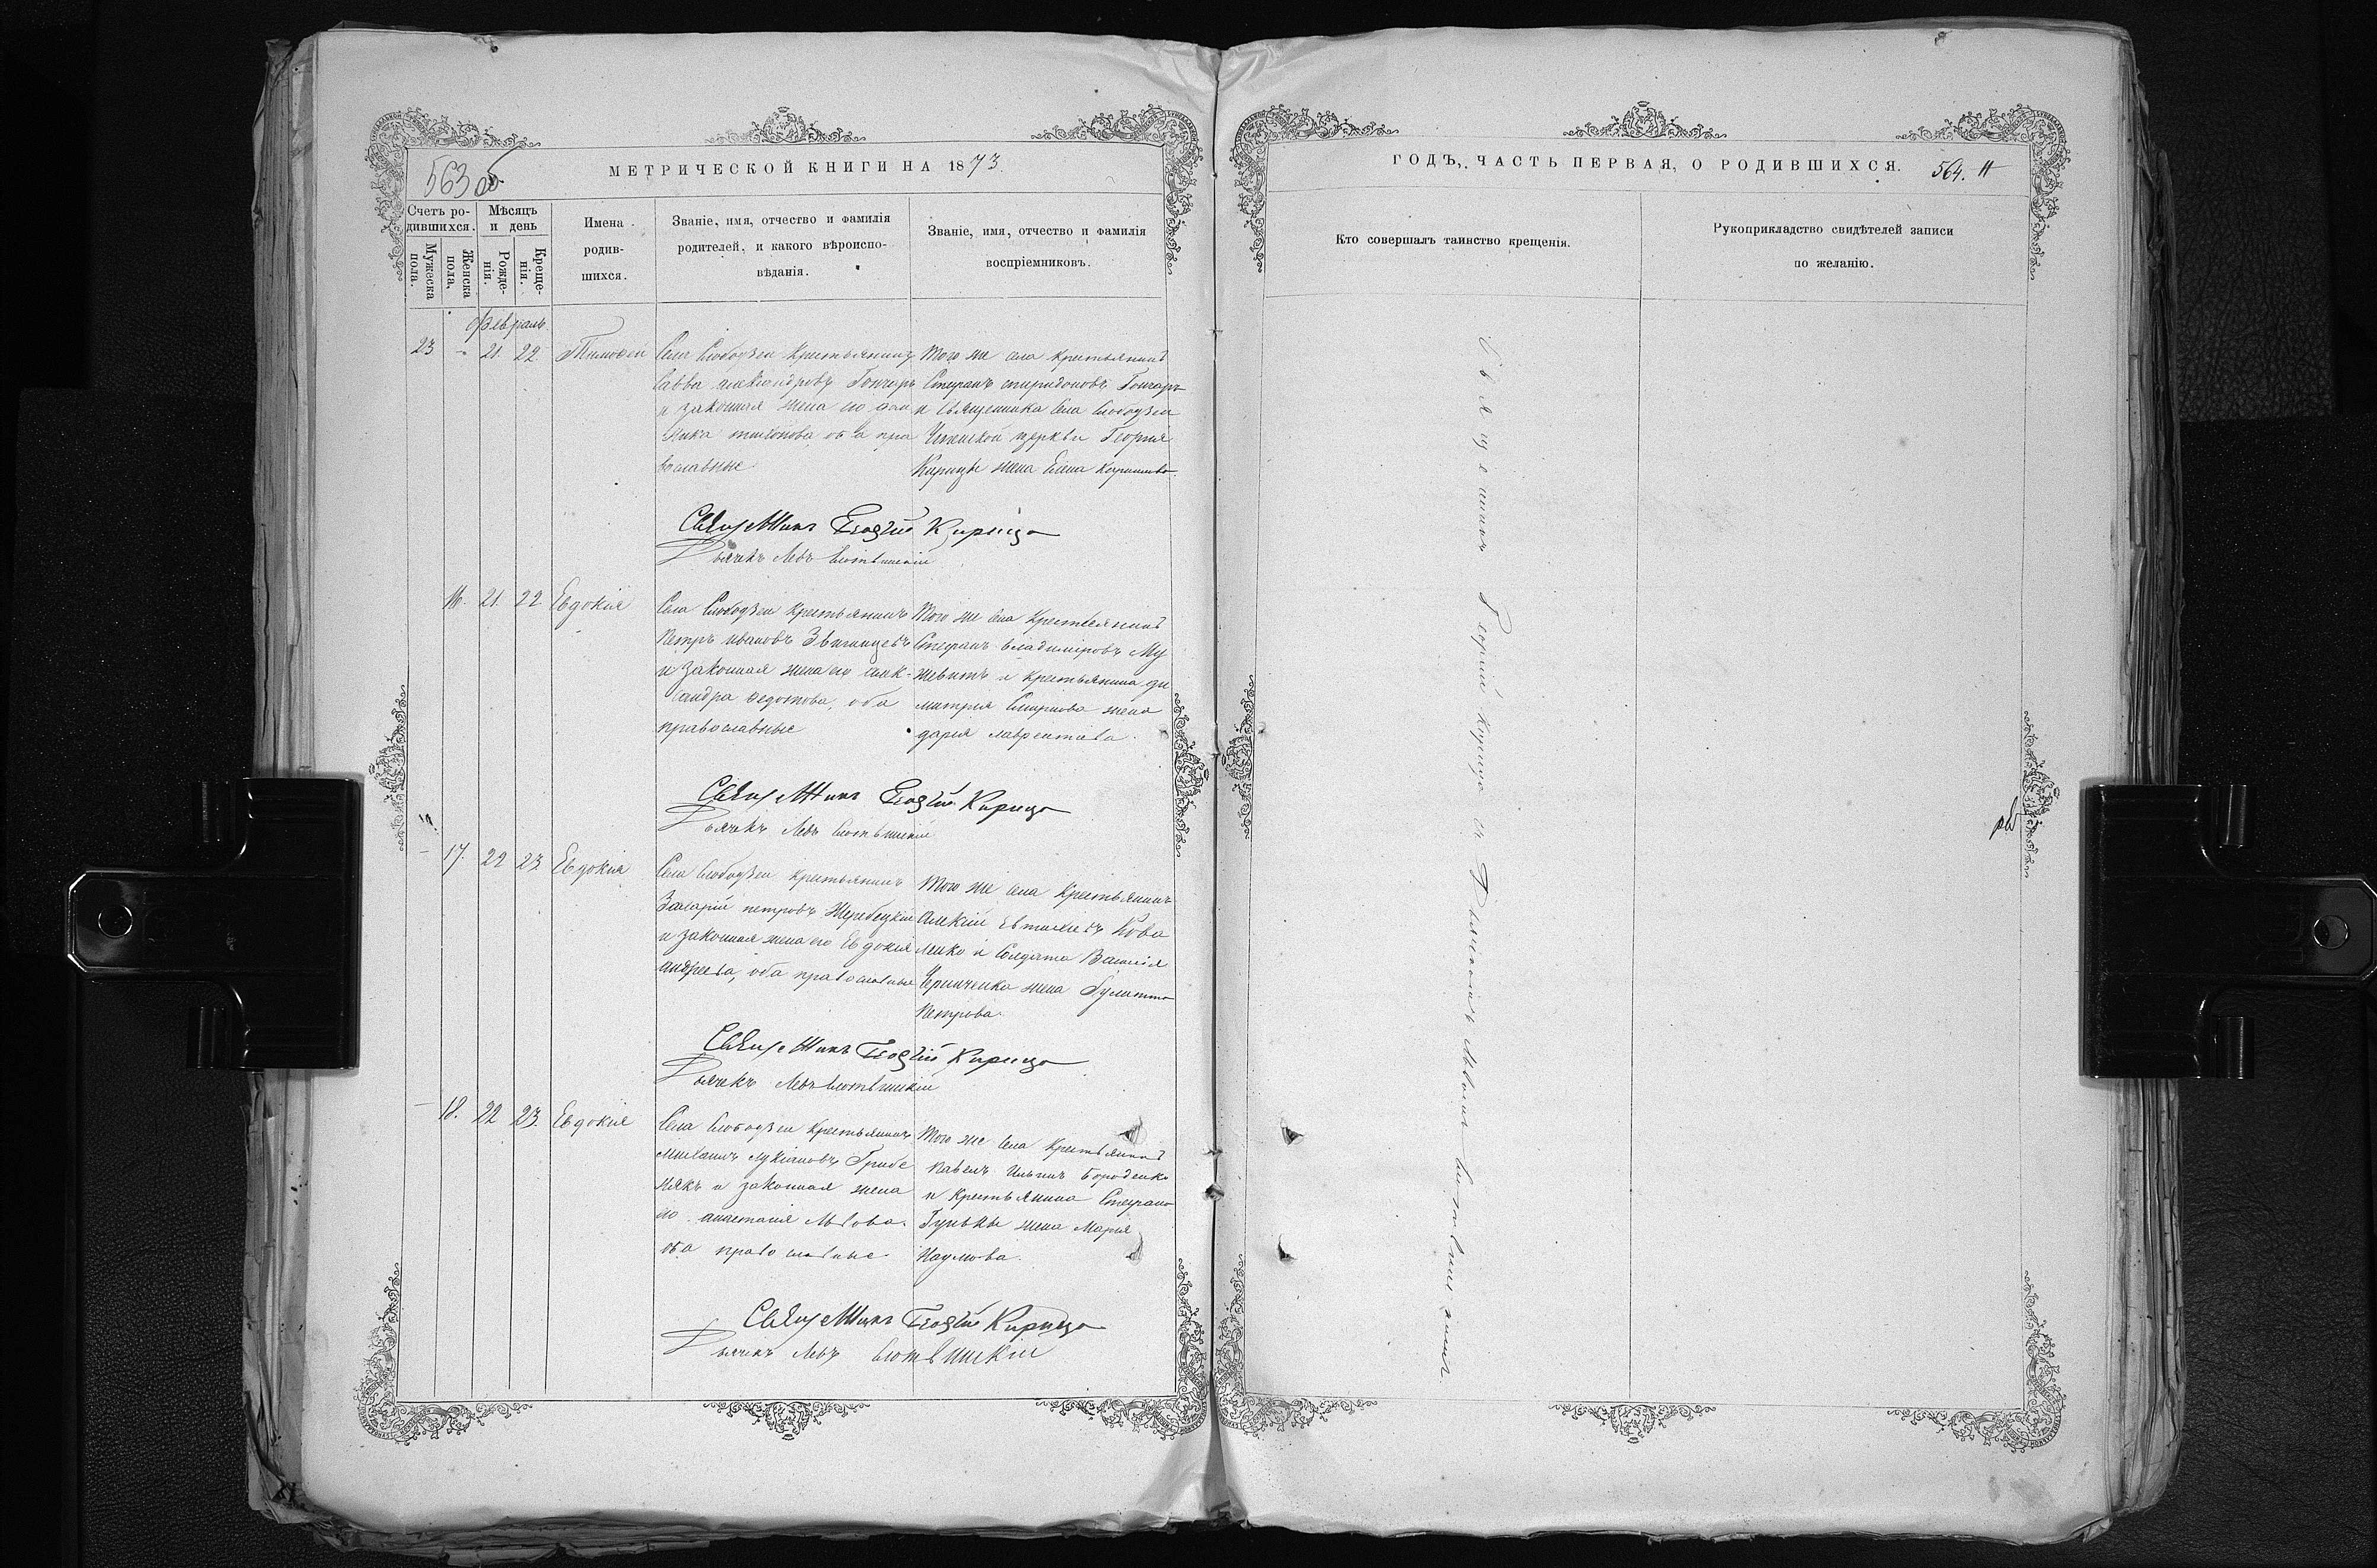 563 об
МЕТРИЧЕСКОЙ КНИГИ НА 1873.
Счетъ ро-
дившихся.
Мѣсяцъ
и день
Мужеска
пола.
Женска
пола,
Рожде-
нія.
Креще-
нія.
Имена
родив-
шихся.
Званіе, имя, отчество и фамилія
родителей, и какого вѣроиспо-
вѣданія.
Званіе, имя, отчество и фамилія
воспріемниковъ.
февраль.
23 - 21. 22 Тимофей
Села Слободзеи Крестьянинъ
Савва Александровъ Гончаръ
и законная жена его
оба пра
вославные
Того же села крестьянинъ
Стефанъ спиридоновъ Гончаръ
и Священника села Слободзеи
церкви Георгия
Кирицы жена Елена
Священникъ Георгій Кирица
Дьячекъ Левъ
16. 21. 22 Евдокія
Села Слободзеи крестьянинъ
Петръ ивановъ
и законная жена его алек-
сандра Федотова, оба
православные
Того же села Крестьянинъ
Стефанъ владиміровъ Му
и крестьянина ди
митрия Смирнова жена
дария лаврентиева.
Священникъ Георгій Кирица
Дьячекъ Левъ
- 17. 22 23 Евдокія
Села Слободзеи крестьянинъ
Захарій петровъ Жеребецкій
и законная жена его Евдокия
андреева, оба православные
Того же села Крестьянинъ
Алексій Евтихіевъ Кова
ленко и Солдата Василія
жена
Петрова.
Священникъ Георгій Кирица
Дьячекъ Левъ
- 18. 22 23. Евдокія
Села Слободзеи крестьянинъ
Михаилъ Лукіановъ Гребе
някъ и законная жена
его анастасія Львова.
оба православные
Того же села Крестьянинъ
павелъ Ильинъ Бороденко
и Крестьянина Стефана
Гульки жена Мария
Наумова.
Священникъ Георгій Кирица
Дьячекъ Левъ
ГОДЪ, ЧАСТЬ ПЕРВАЯ, О РОДИВШИХСЯ.
564.
Кто совершалъ таинство крещенія.
Рукоприкладство свидѣтелей записи
по желанію.
Священникъ Георгий Кирица съ Дьячкомъ Львомъ